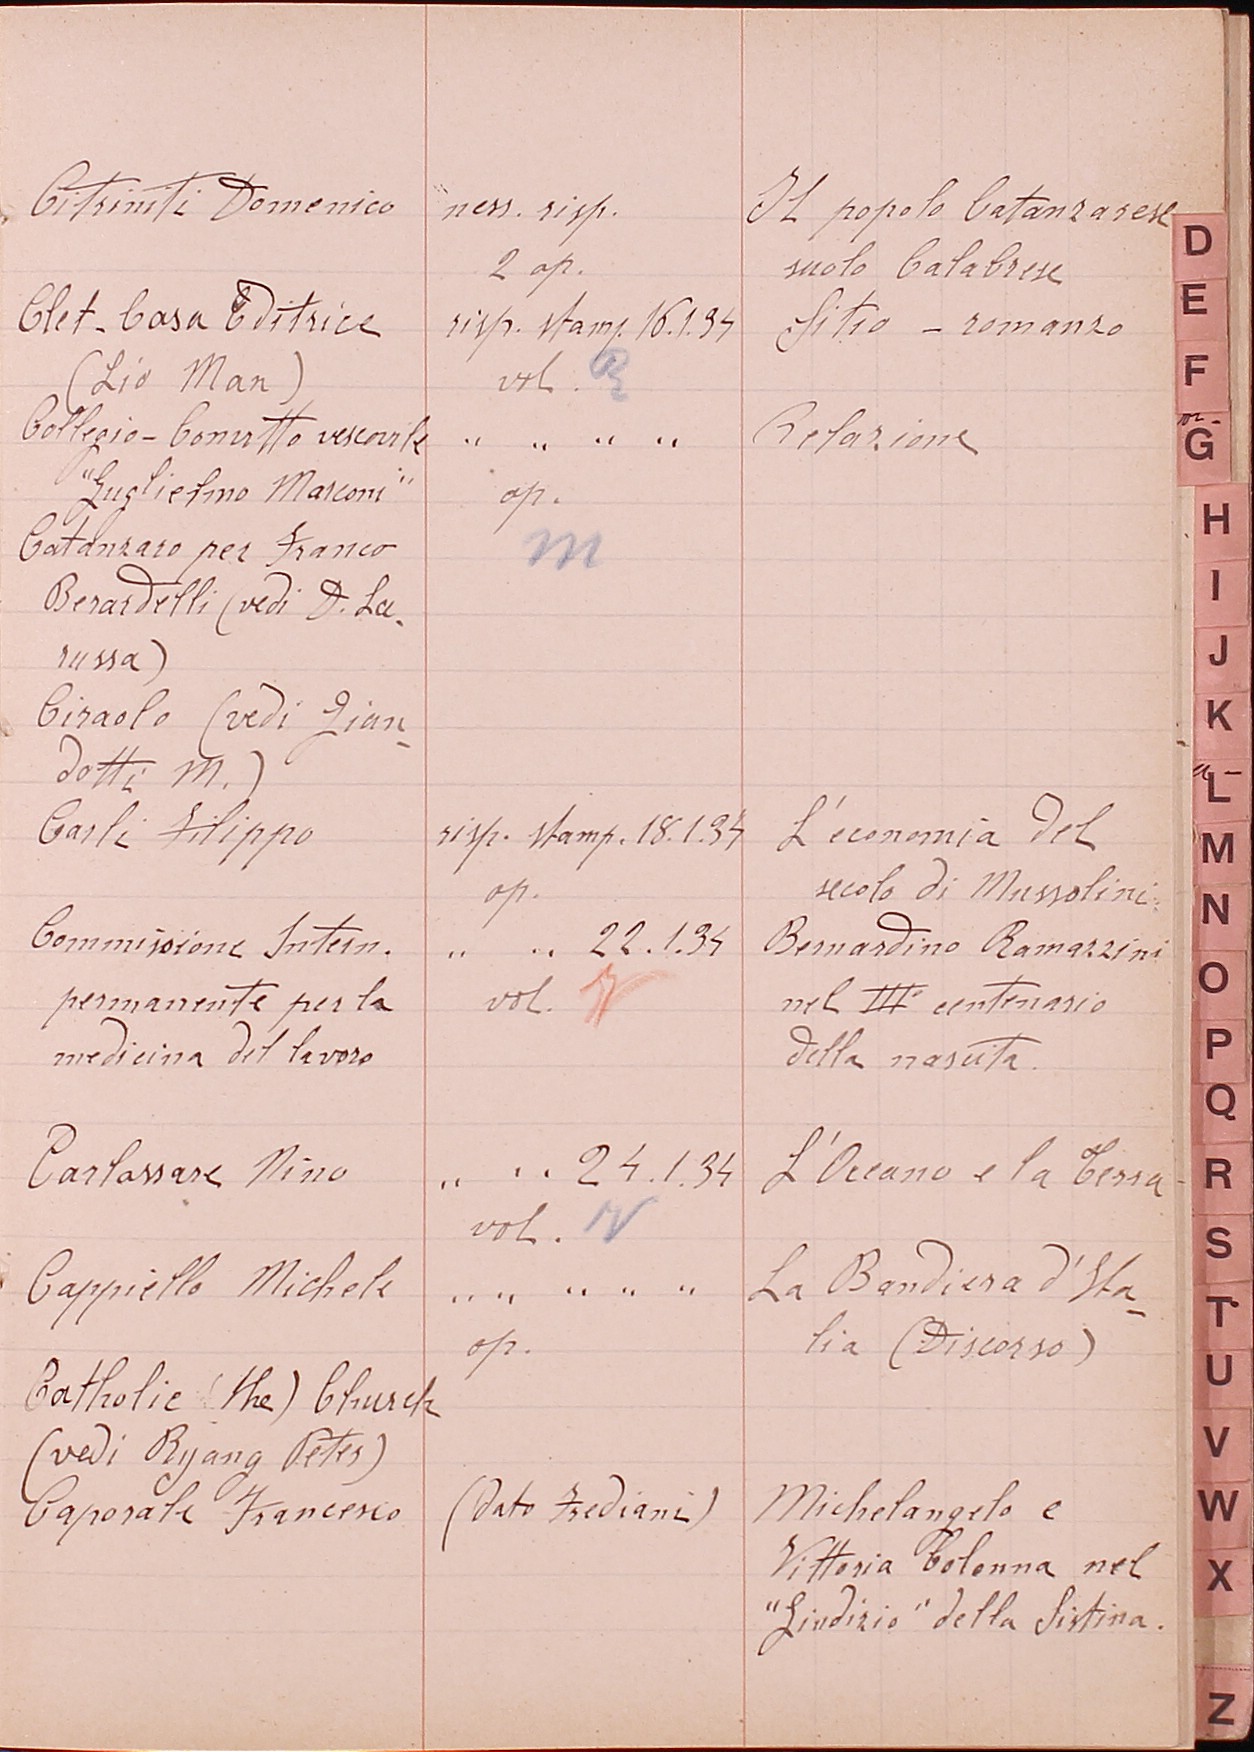 Citriniti Domenico ness. risp. Il popolo Catanzarese
2 op. suolo Calabrese
Clet - Casa Editrice risp. stamp. 16.1.34 Sitio - romanzo
(Lio Man) vol. R
Collegio - Convitto vescovile " " " " Relazione
"Guglielmo Marconi" op.
Catanzaro per Franco M
Berardelli (vedi D. La-
russa)
Ciraolo (vedi Gian-
dotti M.)
Carli Filippo risp. stamp. 18.1.34 L'economia del
op. secolo di Mussolini.
Commissione Intern. " " 22.1.34 Bernardino Ramazzini
permanente per la vol. nel III° centenario
medicina del lavoro della nascita.
Carlassare Nino " " 24.1.34 L'Oceano e la Terra
vol.
Cappiello Michele " " " " " La Bandiera d'Ita-
op. lia (Discorso)
Catholic (the) Church
(vedi Ryang Peter)
Caporale Francesco (dato Frediani) Michelangelo e
Vittoria Colonna nel
"Giudizio" della Sistina.
D
E
F
G
H
I
J
K
L
M
N
O
P
Q
R
S
T
U
V
W
X
Z